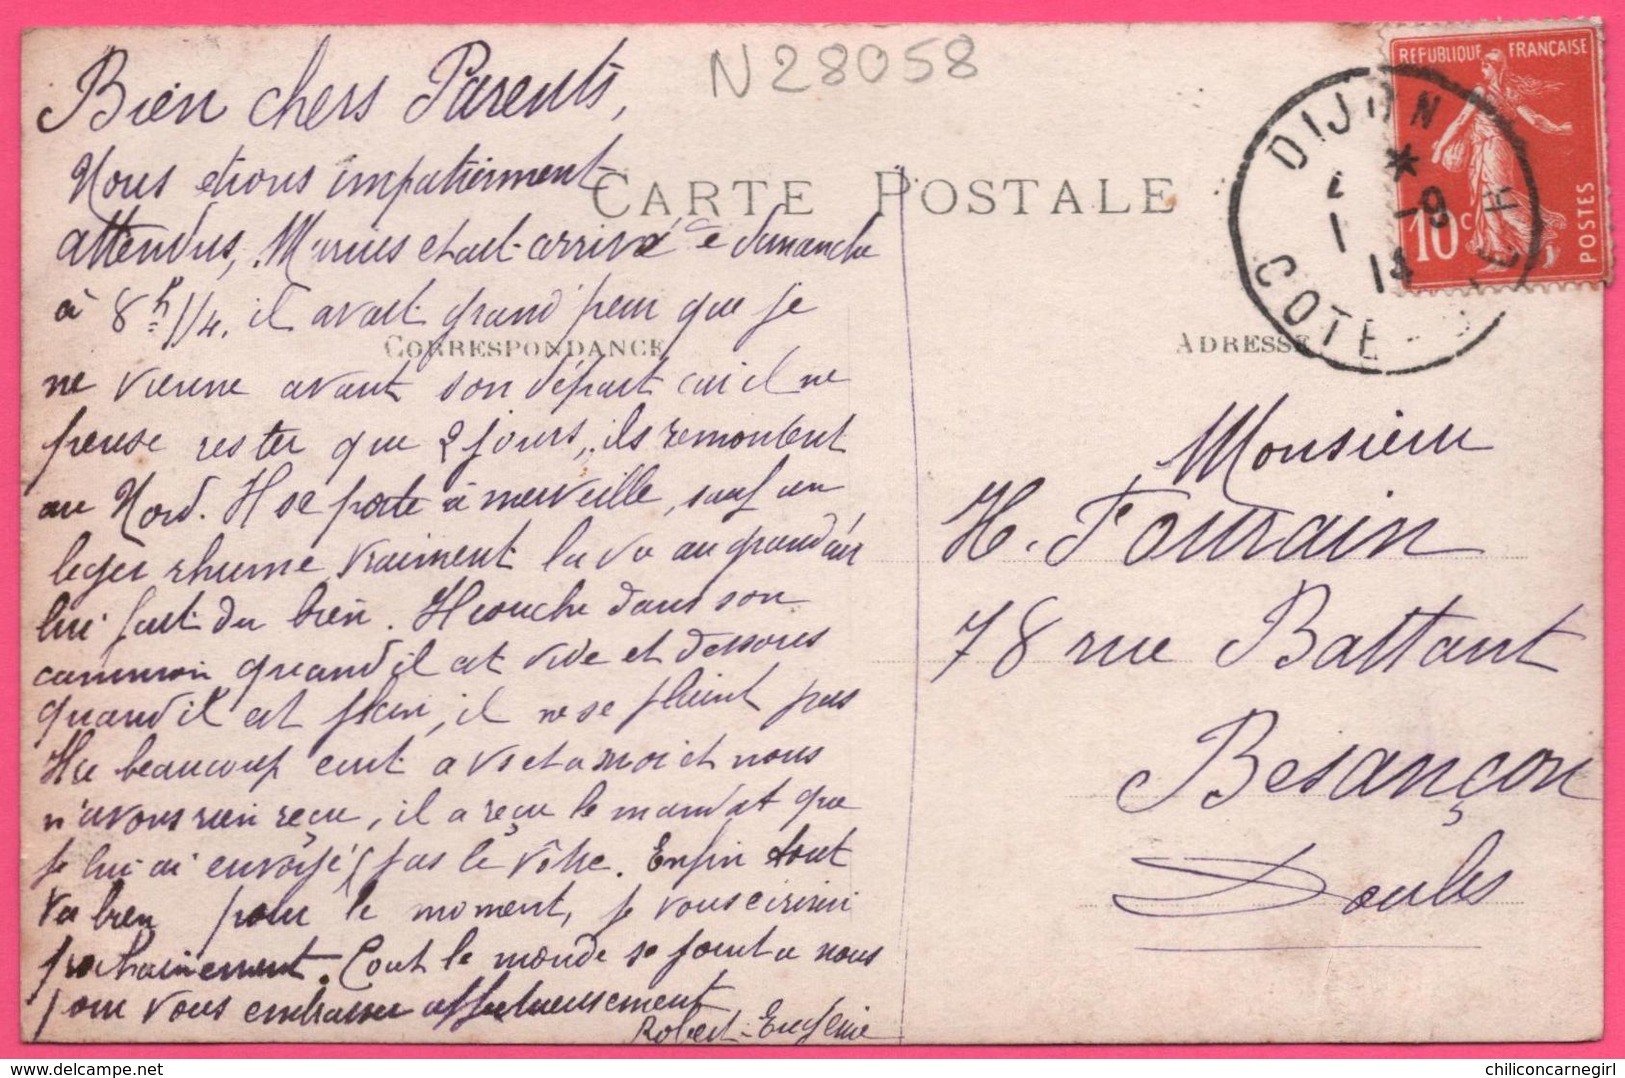 N28058
Bien chers Parents,
Nous étions impatiemment
attendus, Marius était arrivé ce dimanche
à 8h 1/4, il avait grand peur que je
ne vienne avant son départ car il ne
pense rester que 2 jours, ils remontent
au Nord. Il se porte à merveille, sauf un
leger rhume vraiment la vie au grand air
lui fait du bien. Il couche dans son
camion quand il est vide et dessous
quand il est plein, il ne se plaint pas
Il a beaucoup écrit à vs et à moi et nous
n'avons rien reçu, il a reçu le mandat que
je lui ai envoyé (pas le vôtre. Enfin tout
va bien pour le moment, je vous écrirai
prochainement. Tout le monde se joint à nous
pour vous embrasser affectueusement
Robert-Eugénie
CARTE POSTALE
CORRESPONDANCE
ADRESSE
REPUBLIQUE FRANÇAISE
10c
POSTES
DIJON
1 -9
14
COTE-D'OR
Monsieur
H. Fourain
78 rue Battant
Besançon
Doubs
https://www.delcampe.net
chiliconcarnegirl